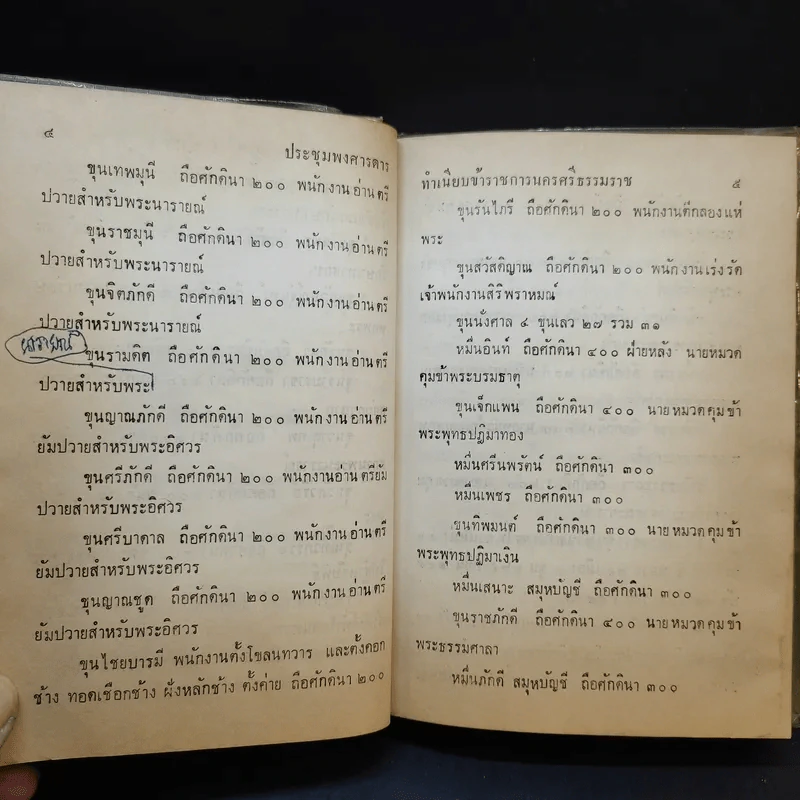 ๔
ประชุมพงศารดาร
ขุนเทพมุนี ถือศักดินา ๒๐๐ พนักงานอ่านตรี
ปวายสำหรับพระนารายณ์
ขุนราชมุนี ถือศักดินา ๒๐๐ พนักงานอ่านตรี
ปวายสำหรับพระนารายณ์
ขุนจิตภักดี ถือศักดินา ๒๐๐ พนักงานอ่านตรี
ปวายสำหรับพระนารายณ์
ขุนรามดิต ถือศักดินา ๒๐๐ พนักงานอ่านตรี
ปวายสำหรับพระ
ขุนญาณภักดี ถือศักดินา ๒๐๐ พนักงานอ่านตรี
ยัมปวายสำหรับพระอิศวร
ขุนศรีภักดี ถือศักดินา ๒๐๐ พนักงานอ่านตรียัม
ปวายสำหรับพระอิศวร
ขุนศรีบาดาล ถือศักดินา ๒๐๐ พนักงานอ่านตรี
ยัมปวายสำหรับพระอิศวร
ขุนญาณชูด ถือศักดินา ๒๐๐ พนักงานอ่านตรี
ยัมปวายสำหรับพระอิศวร
ขุนไชยบารมี พนักงานตั้งโขลนทวาร และตั้งคอก
ช้าง ทอดเชือกช้าง ฝั่งหลักช้าง ตั้งค่าย ถือศักดินา ๒๐๐
ทำเนียบข้าราชการนครศรีธรรมราช
๕
ขุนรันไภรี ถือศักดินา ๒๐๐ พนักงานตีกลองแห่
พระ
ขุนสวัสดิญาณ ถือศักดินา ๒๐๐ พนักงานเร่งรัด
เจ้าพนักงานสิริพราหมณ์
ขุนนั่งศาล ๔ ขุนเลว ๒๗ รวม ๓๑
หมื่นอินท์ ถือศักดินา ๔๐๐ ฝ่ายหลัง นายหมวด
คุมข้าพระบรมธาตุ
ขุนเจ็กแพน ถือศักดินา ๔๐๐ นายหมวดคุมข้า
พระพุทธปฏิมาทอง
หมื่นศรีนพรัตน์ ถือศักดินา ๓๐๐
หมื่นเพชร ถือศักดินา ๓๐๐
ขุนทิพมนต์ ถือศักดินา ๓๐๐ นายหมวดคุมข้า
พระพุทธปฏิมาเงิน
หมื่นเสนาะ สมุหบัญชี ถือศักดินา ๓๐๐
ขุนราชภักดี ถือศักดินา ๔๐๐ นายหมวดคุมข้า
พระธรรมศาลา
หมื่นภักดี สมุหบัญชี ถือศักดินา ๓๐๐